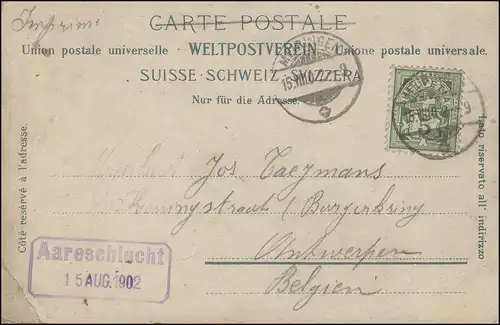 CARTE POSTALE
Union postale universelle - WELTPOSTVEREIN - Unione postale universale.
SUISSE - SCHWEIZ - SVIZZERA
Nur für die Adresse.
MEIRINGEN
HELVETIA
5
Côté réservé à l'adresse.
Lato riservato all' indirizzo
Jos Taeymans
(Burgerkring
Antwerpen
Belgien
Aareschlucht
15 AUG. 1902